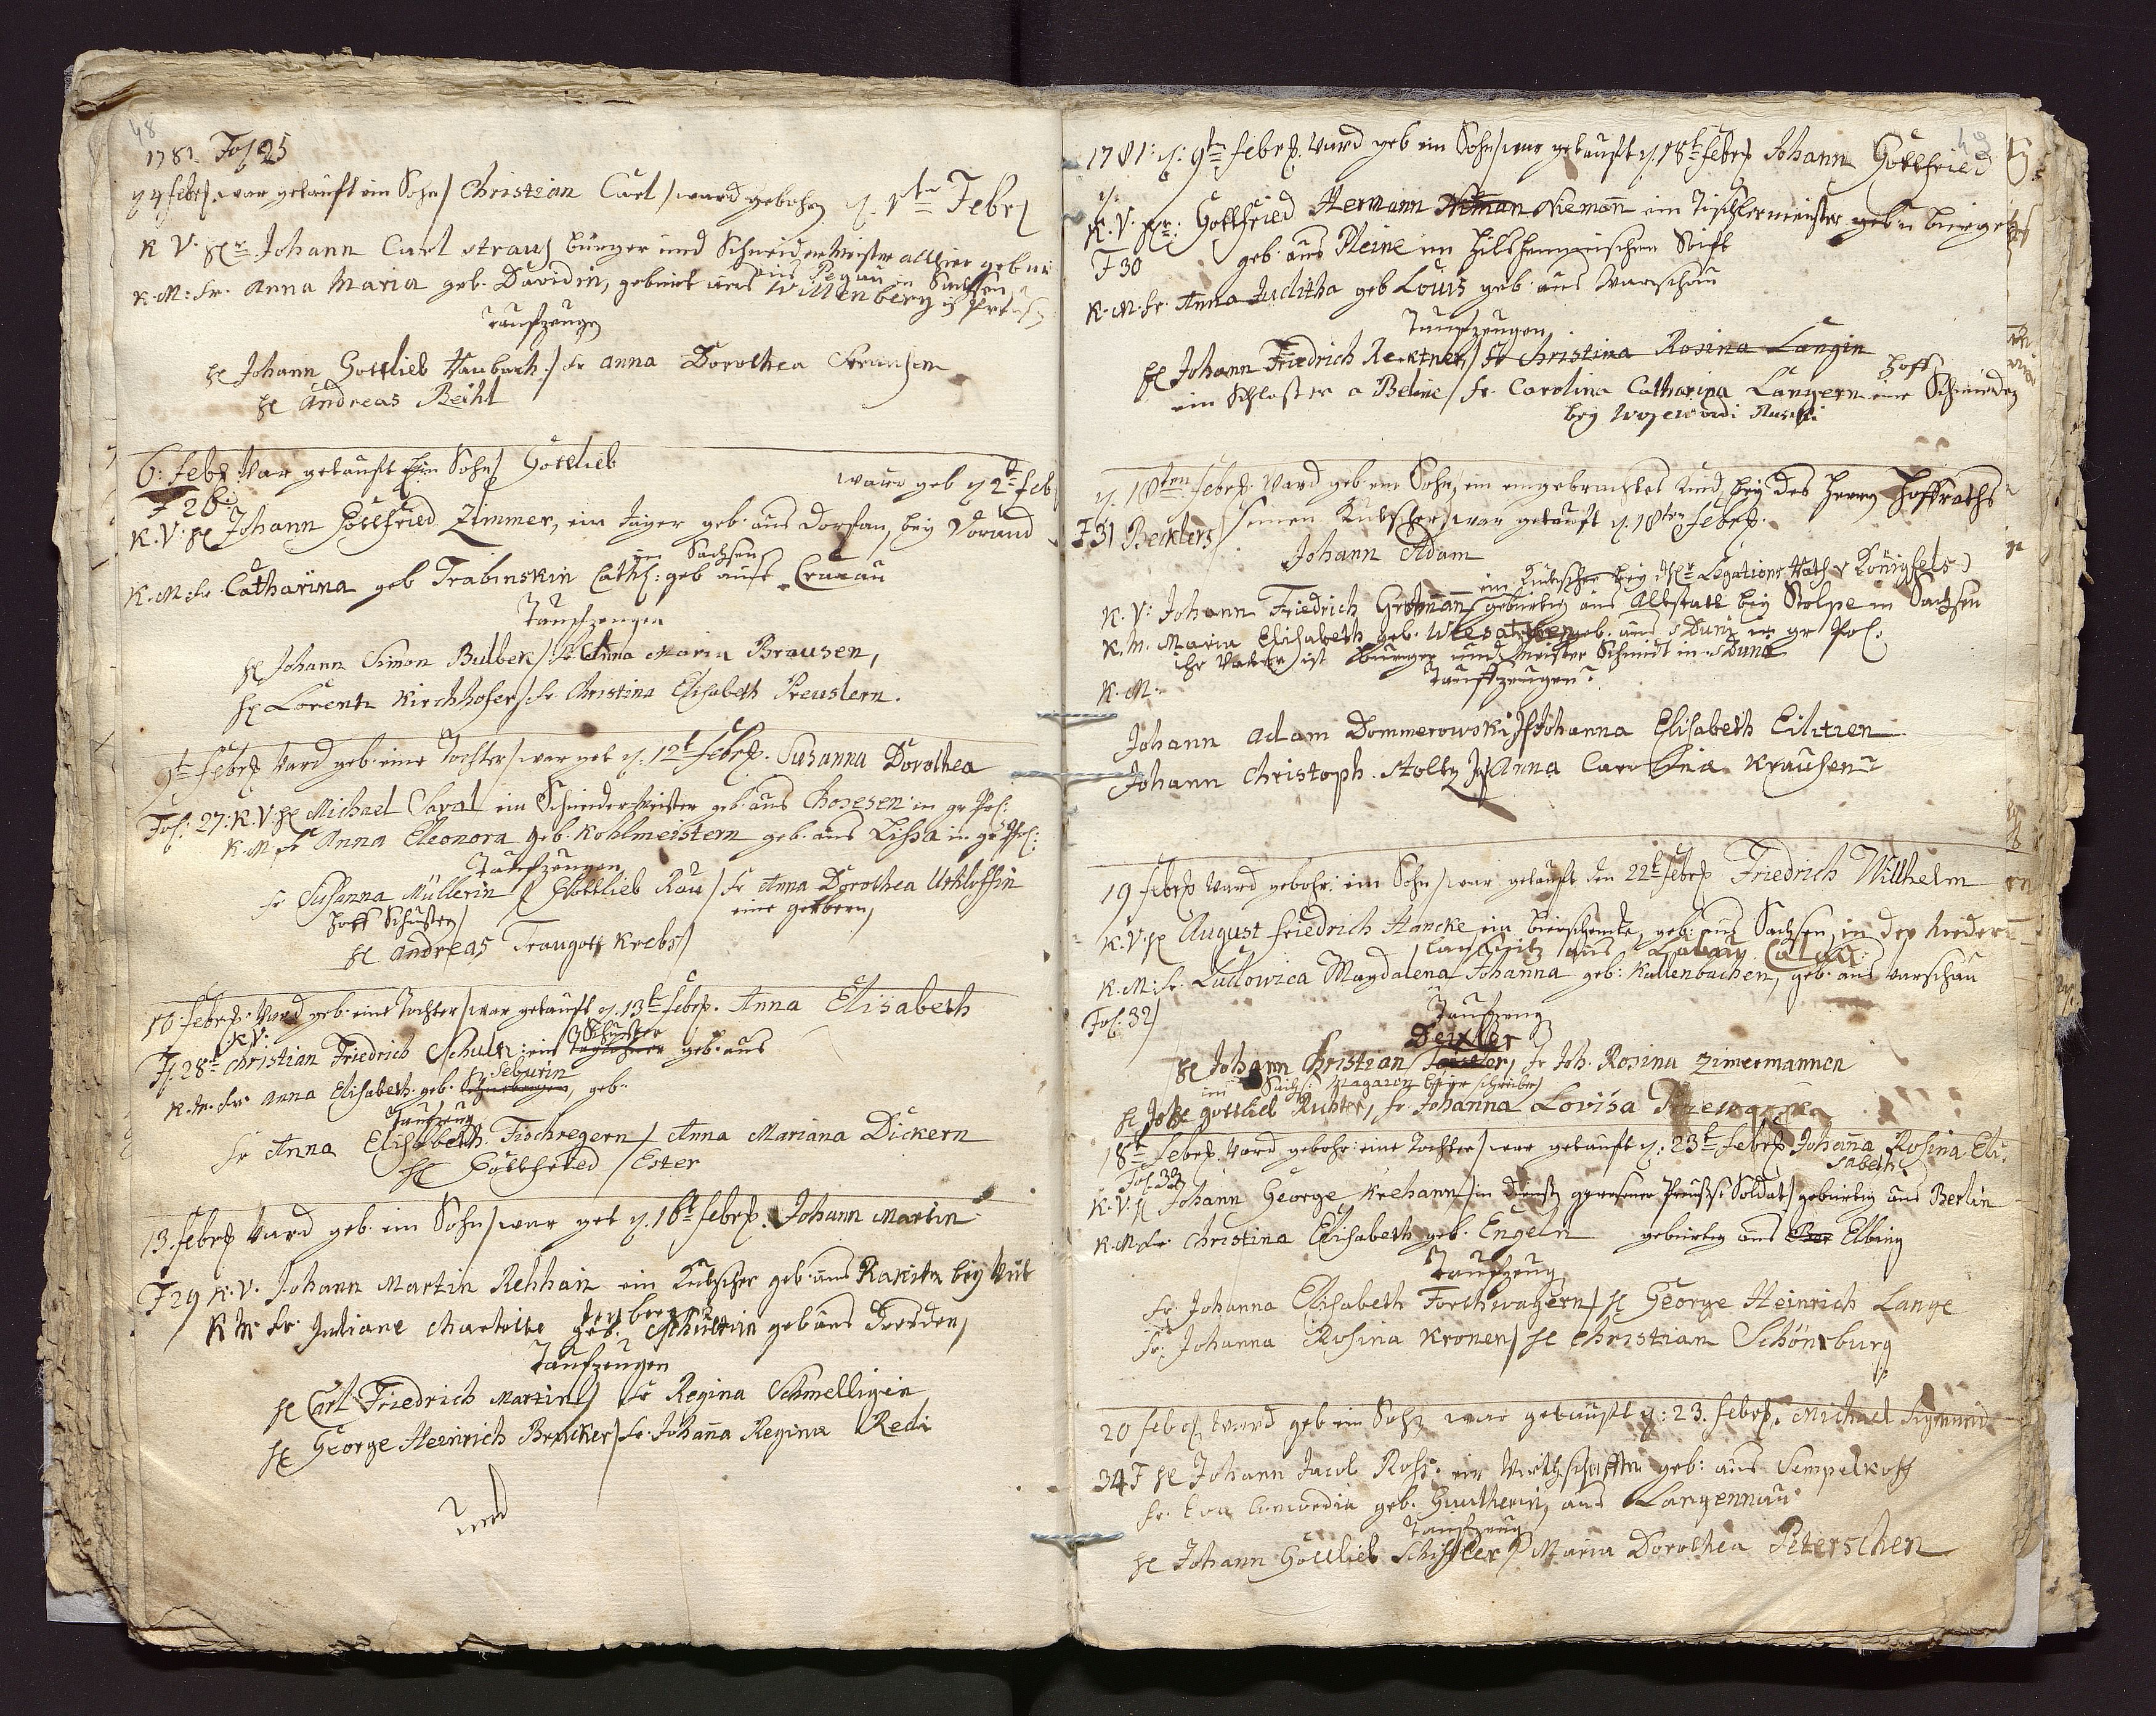 48
1781. Fol 25
d 4 Febr. war getauft ein Sohn / Christian Carl / ward gebohr. d. 1te Febr
K V. Hr. Johann Carl Straus Bürger und Schneider Meister allhier geb
aus Pegau in Sachsen
K. M: Fr. Anna Maria geb. Davidin, gebürt aus Willenberg
Taufzeugen
He Johann Gottlieb Haubach / Fr Anna Dorothea
He Andreas Reiht
6: Febr war getauft Ein Sohn / Gottlieb
ward geb d 2t Feb
F 26:
K. V: He Johann Gottfried Zimmer, ein Jäger geb. aus Dorfan, bey
in Sachsen
K. M: Fr Catharina geb Trabinskin Cath: geb aus Cracau
Taufzeugen
He Johann Simon Bulbek / Fr Anna Maria Brausen,
He Lorentz Kirchhofer / Fr Christina Elisabeth Preuslern.
9t Febr ward geb. eine Tochter / war get d. 12t Febr. Susanna Dorothea
Fol: 27: K. V: He Michael Saval ein Schneider Meister geb. aus in gr Pol:
K. M: Fr Anna Eleonora geb. Kohlmeistern geb. aus Lissa in gr Pol:
Taufzeugen
Fr Susanna Müllerin / Gottlieb Rau / Fr Anna Dorothea
Hoff Schuster / eine gerbern /
He Andreas Traugott Krebs /
10: Febr: ward geb. eine Tochter / war getauft d. 13t Febr. Anna Elisabeth
K V: Schuster
F. 28t Christian Friedrich Schultz: ein Tagelöhner geb. aus
Seburin
K. M. Fr. Anna Elisabeth. geb. geb.
Taufzeug
Fr Anna Elisabeth. Fischregern / Anna Mariana Dickern
He Gottfried / Ester
13. Febr ward geb. ein Sohn / war get d. 16t Febr. Johann Martin
F 29 K. V. Johann Martin Rehhain ein Kutscher geb. aus Rakita bey
K M. Fr. Juliane Charlotte geb. Schultzin geb aus Dresden,
Taufzeugen
He Carl Friedrich Martini / Fr Regina Schmelligin
He George Heinrich Brucker / Fr. Johanna Regina Redi
und
49
1781: d: 9te Febr. ward geb ein Sohn / war getauft d. 18t Febr Johann Gottfried
K. V: Hr: Gottfried Hermann Niman Niemann ein Tischlermeister geb u bürger
F 30 geb. aus Pleine im Hildesheimischen Stift
K. M. Fr. Anna Juditha geb Louis geb. aus Warschau
Taufzeugen
He Johann Friedrich Rextner / Fr Christina Rosina Langin
Hoff
ein Schlosser a Beline / Fr. Carolina Catharina Langern eine Schmieden
bey Woiewodi Ruski
d. 18ten Febr. ward geb ein Sohn, ein eingebrachtes Kind, bey des Herrn Hoffraths
F 31 Becklers / seinen Kutscher / war getauft d. 18ten Febr.
Johann Adam
ein Kutscher bey Hr Legations Rath v Königfels
K. V: Johann Friedrich Grohmann gebürtig aus Altstatt bey Stolpe in Sachsen
K. M. Maria Elisabeth geb. geb. aus Duni in gr Pol.
Ihr Vater ist Bürger und Meister Schmidt in Duna
K. M.
Taufzeugen
Johann Adam Dommerowski / Johanna Elisabeth Eilitzen
Johann Christoph Stoltz / Anna Carolina Krausen
19 Febr ward gebohr: ein Sohn / war getauft den 22t Febr Friedrich Willhelm
K. V. He August Friedrich Hancke ein Bierschencke, geb: aus Sachsen, in der Nieder
Lausnitz aus Calau
K. M: Fr. Ludowica Magdalena Johanna geb: Kallenbachen, geb: aus Warschau
Fol. 32 / Taufzeug
Dexler
He Johann Christian / Fr Joh. Rosina Zimermannen
im Sächs: Magazin
He Joh Gottlieb Richter, Fr Johanna Lovisa
18t Febr. ward gebohr: eine Tochter / war getauft d: 23t Febr Johanna Rosina Eli.
sabeth
Fol. 33
K. V. He Johann George Krehann / in Dienst gewesener Preuss: Soldat / gebürtig aus Berlin
K. M Fr. Christina Elisabeth geb. Engeln gebürtig aus Ber Elbing
Taufzeug
Fr. Johanna Elisabeth Forchwagern / He George Heinrich Lange
Fr. Johanna Rosina Kronen / He Christian Schönburg
20 Febr ward geb ein Sohn war getauft d: 23. Febr. Michael Sigmund
34 F He Johann Jacob Ross. ein Wirthschaffter geb: aus
Fr. Eva Concordia geb. Guntherin, aus Langennau
Taufzeug
He Johann Gottlieb Schiffler / Maria Dorothea Peterschen